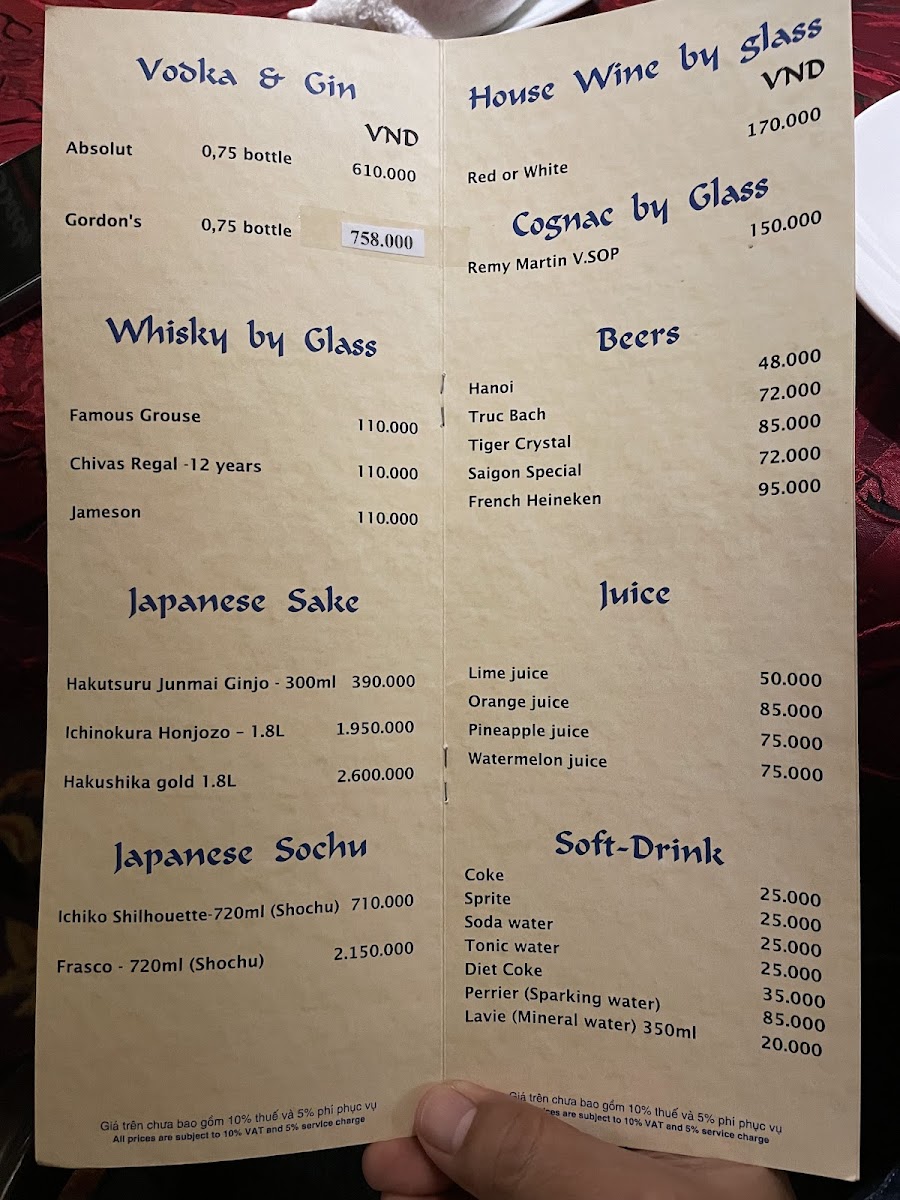 Vodka & Gin
VND
Absolut 0,75 bottle 610.000
Gordon's 0,75 bottle 758.000
Whisky by Glass
Famous Grouse 110.000
Chivas Regal -12 years 110.000
Jameson 110.000
Japanese Sake
Hakutsuru Junmai Ginjo - 300ml 390.000
Ichinokura Honjozo – 1.8L 1.950.000
Hakushika gold 1.8L 2.600.000
Japanese Sochu
Ichiko Shilhouette-720ml (Shochu) 710.000
Frasco - 720ml (Shochu) 2.150.000
Giá trên chưa bao gồm 10% thuế và 5% phí phục vụ
All prices are subject to 10% VAT and 5% service charge
House Wine by glass
VND
Red or White 170.000
Cognac by Glass
Remy Martin V.SOP 150.000
Beers
Hanoi 48.000
Truc Bach 72.000
Tiger Crystal 85.000
Saigon Special 72.000
French Heineken 95.000
Juice
Lime juice 50.000
Orange juice 85.000
Pineapple juice 75.000
Watermelon juice 75.000
Soft-Drink
Coke 25.000
Sprite 25.000
Soda water 25.000
Tonic water 25.000
Diet Coke 35.000
Perrier (Sparking water) 85.000
Lavie (Mineral water) 350ml 20.000
Giá trên chưa bao gồm 10% thuế và 5% phí phục vụ
are subject to 10% VAT and 5% service charge